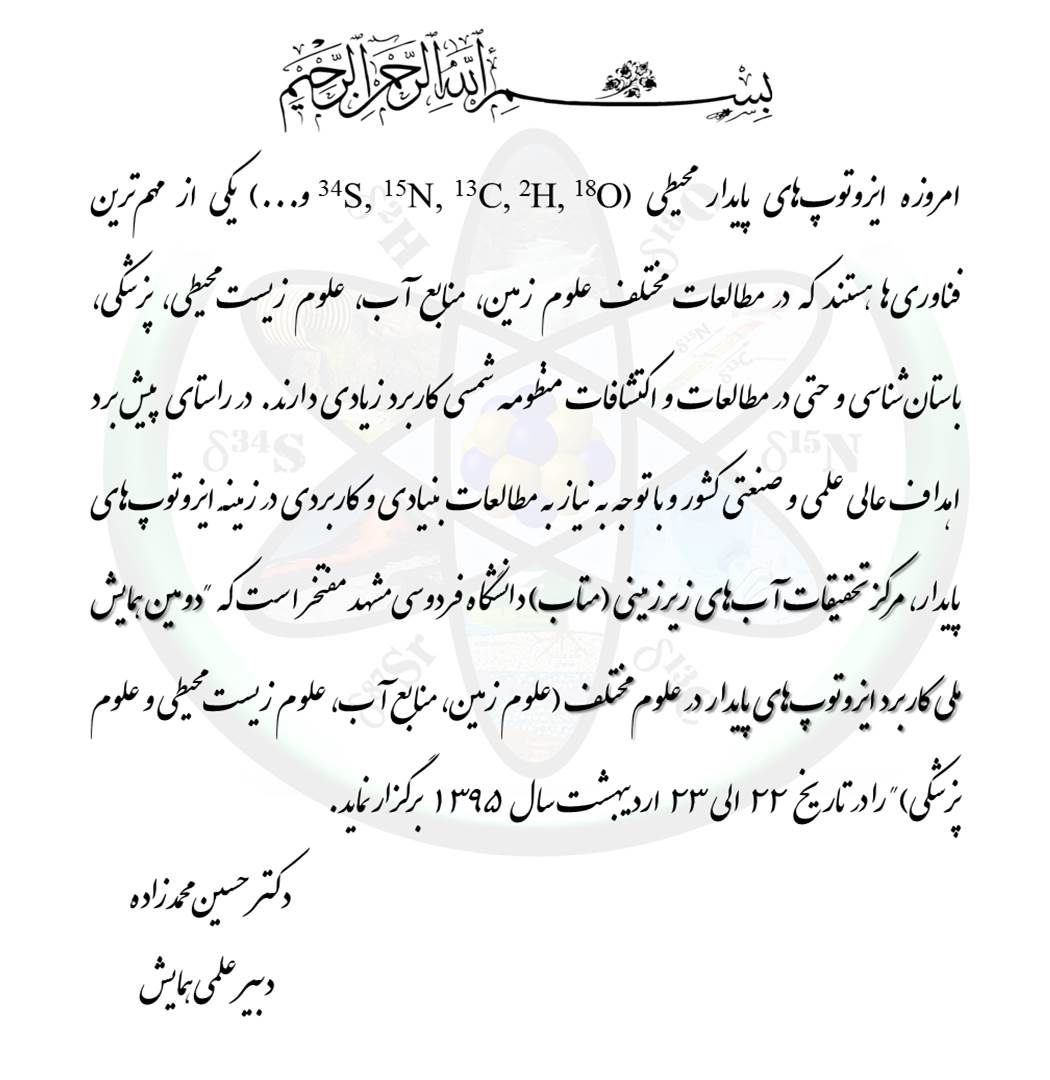 بسم الله الرحمن الرحیم
امروزه ایزوتوپ‌های پایدار محیطی (18O ,2H ,13C ,15N ,34S و...) یکی از مهم‌ترین
فناوری‌ها هستند که در مطالعات مختلف علوم زمین، منابع آب، علوم زیست‌محیطی، پزشکی،
باستان‌شناسی و حتی در مطالعات و اکتشافات منظومه شمسی کاربرد زیادی دارند. در راستای پیش‌برد
اهداف عالی علمی و صنعتی کشور و با توجه به نیاز به مطالعات بنیادی و کاربردی در زمینه ایزوتوپ‌های
پایدار، مرکز تحقیقات آب‌های زیرزمینی (متاب) دانشگاه فردوسی مشهد مفتخر است که "دومین همایش
ملی کاربرد ایزوتوپ‌های پایدار در علوم مختلف (علوم زمین، منابع آب، علوم زیست‌محیطی و علوم
پزشکی)" را در تاریخ ۲۲ الی ۲۳ اردیبهشت سال ۱۳۹۵ برگزار نماید.
دکتر حسین محمدزاده
دبیر علمی همایش
δ2H
δ18O
δ34S
δ15N
87Sr
δ13C